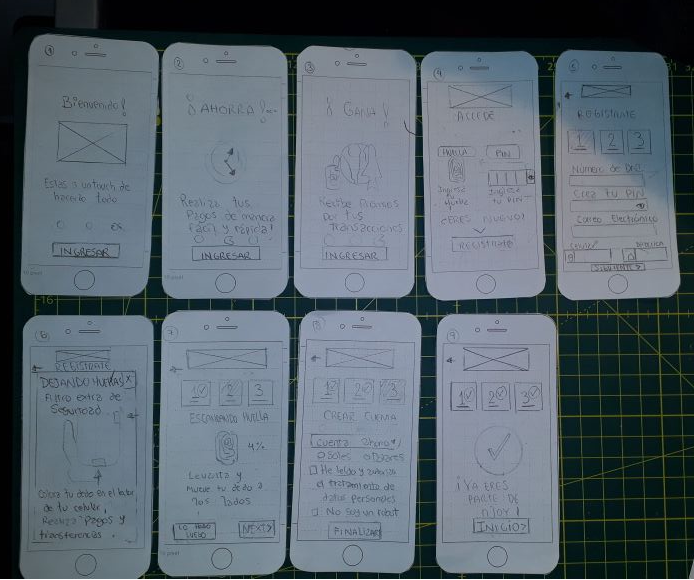 1
Bienvenido!
Estás a un touch de
hacerlo todo
INGRESAR
2
¡AHORRA!
Realiza tus
Pagos de manera
fácil y rápida!
INGRESAR
3
¡GANA!
Recibe Premios
por tus
transacciones
INGRESAR
4
ACCEDE
HUELLA
PIN
Ingrese
tu Huella
Ingrese
tu PIN
¿ERES NUEVO?
REGISTRATE
5
REGISTRATE
1 2 3
Número de DNI
Crea tu PIN
Correo Electrónico
SIGUIENTE >
6
REGISTRATE
DEJANDO HUELLAS X
Filtro extra de
Seguridad
Coloca tu dedo en el lector
de tu celular,
Realiza Pagos y
transferencias.
7
1 2 3
ESCANEANDO HUELLA
4%
Levanta y
Mueve tu dedo a
los lados
LO HAGO
LUEGO
NEXT >
8
1 2 3
CREAR CUENTA
Cuenta ahorro
Soles Dólares
He leído y autorizo
el tratamiento de
datos personales
No soy un robot
FINALIZAR
9
1 2 3
¡YA ERES
PARTE DE
NJOY!
INICIO >